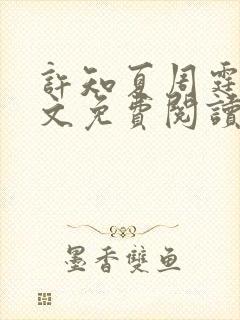 許知夏周霆
文免費閱讀
墨香雙魚